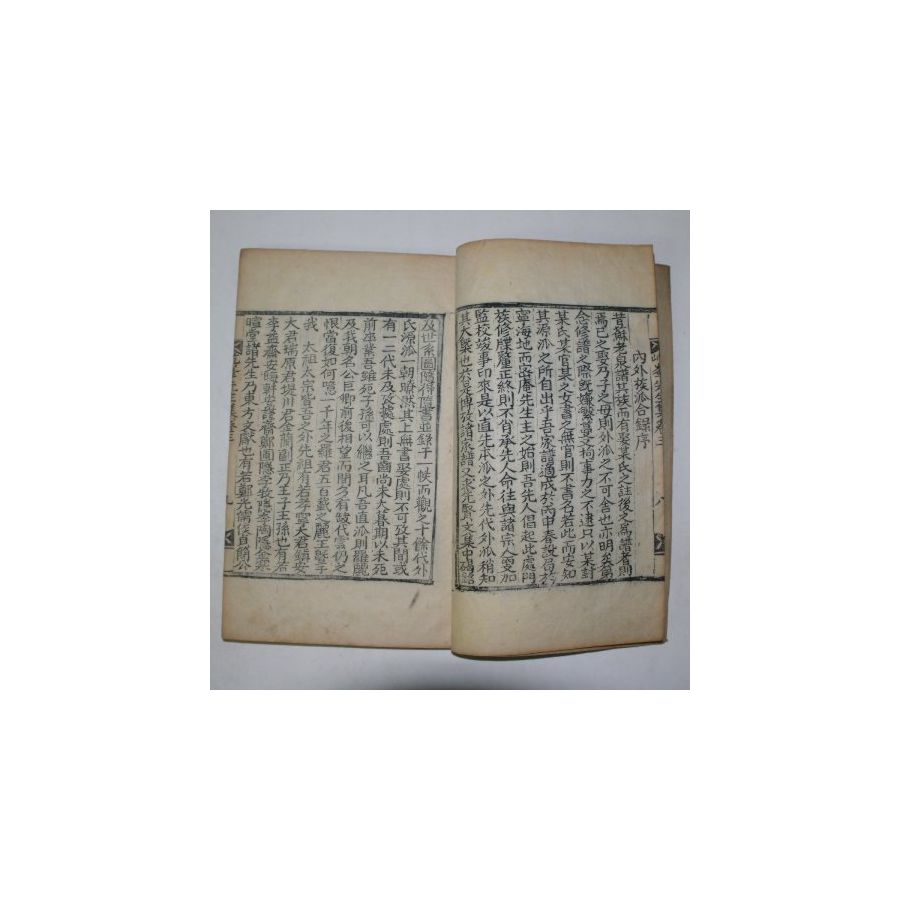 內外族派合錄序
昔蘇老泉譜其族而有娶某氏之註後之爲譜者則
焉已之娶乃子之母則外派之不可舍也亦明矣第
念修譜之際旣嫌繁蔓又拘事力之不逮只以某封
某氏某官某之女書之無官則不書名若此而安知
其源派之所自出乎吾家譜適成於丙申春設局於
寧海地而密庵先生主之始則吾先人倡起此處門
族修牒釐正終則不肖承先人命往與諸宗人更加
監校竣事印來是以直先本派之外先代外派稍知
其大槩也於是博攷諸家譜又求先賢文集中碣銘
及世系圖隨得隨書並錄于一帙而觀之十餘代外
氏源派一朝瞭然其上無書娶處則不可攷其間或
有一二代未及攷據處則吾齒尚未大耋期以未死
前卒業吾雖死子孫可以繼之耳凡吾直派則羅麗
及我朝名公巨卿前後相望而間多有缺代雲仍之
恨當復如何噫一千年之羅君五百載之麗王曁乎
我
太祖大宗皆吾之外先祖有若孝寧大君鎭安
大君瑞原君堤川君金蘭副正乃王子王孫也有若
李益齋安晦軒安謹齋鄭圃隱李牧隱李陶隱金寒
暄堂諸先生乃東方文獻也有若鄭先